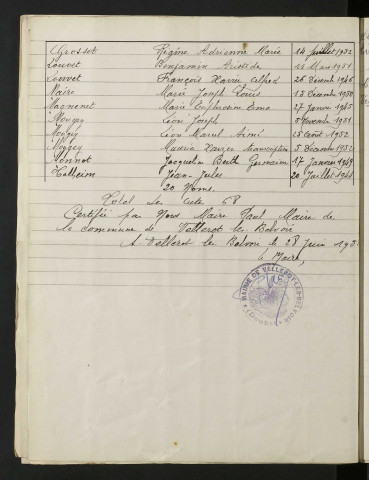 Grosset Régine Adrienne Marie 14 Juillet 1952
Louvet Benjamin Aristide 1951
Louvet François Xavier Alfred 26 Décembre 1946
Maire Marie Joseph Louis 13 Décembre 1950
Magnenet Marie Euphrosine Emma 27 Janvier 1945
Mougey Léon Joseph 1951
Mougey Léon Marcel Aimé 25 Août 1952
Mougey Maurice Xavier 5 Décembre 1952
Monnot Jacqueline Berthe Germaine 17 Janvier 1949
Jean Jules 20 Juillet 1948
20 Noms.
Total des actes 68
Certifié par Nous Maire Paul Maire de
la commune de Vellerot les Belvoir
A Vellerot les Belvoir le 28 Juin
le Maire,
MAIRIE DE VELLEROT-LES-BELVOIR
(Doubs)